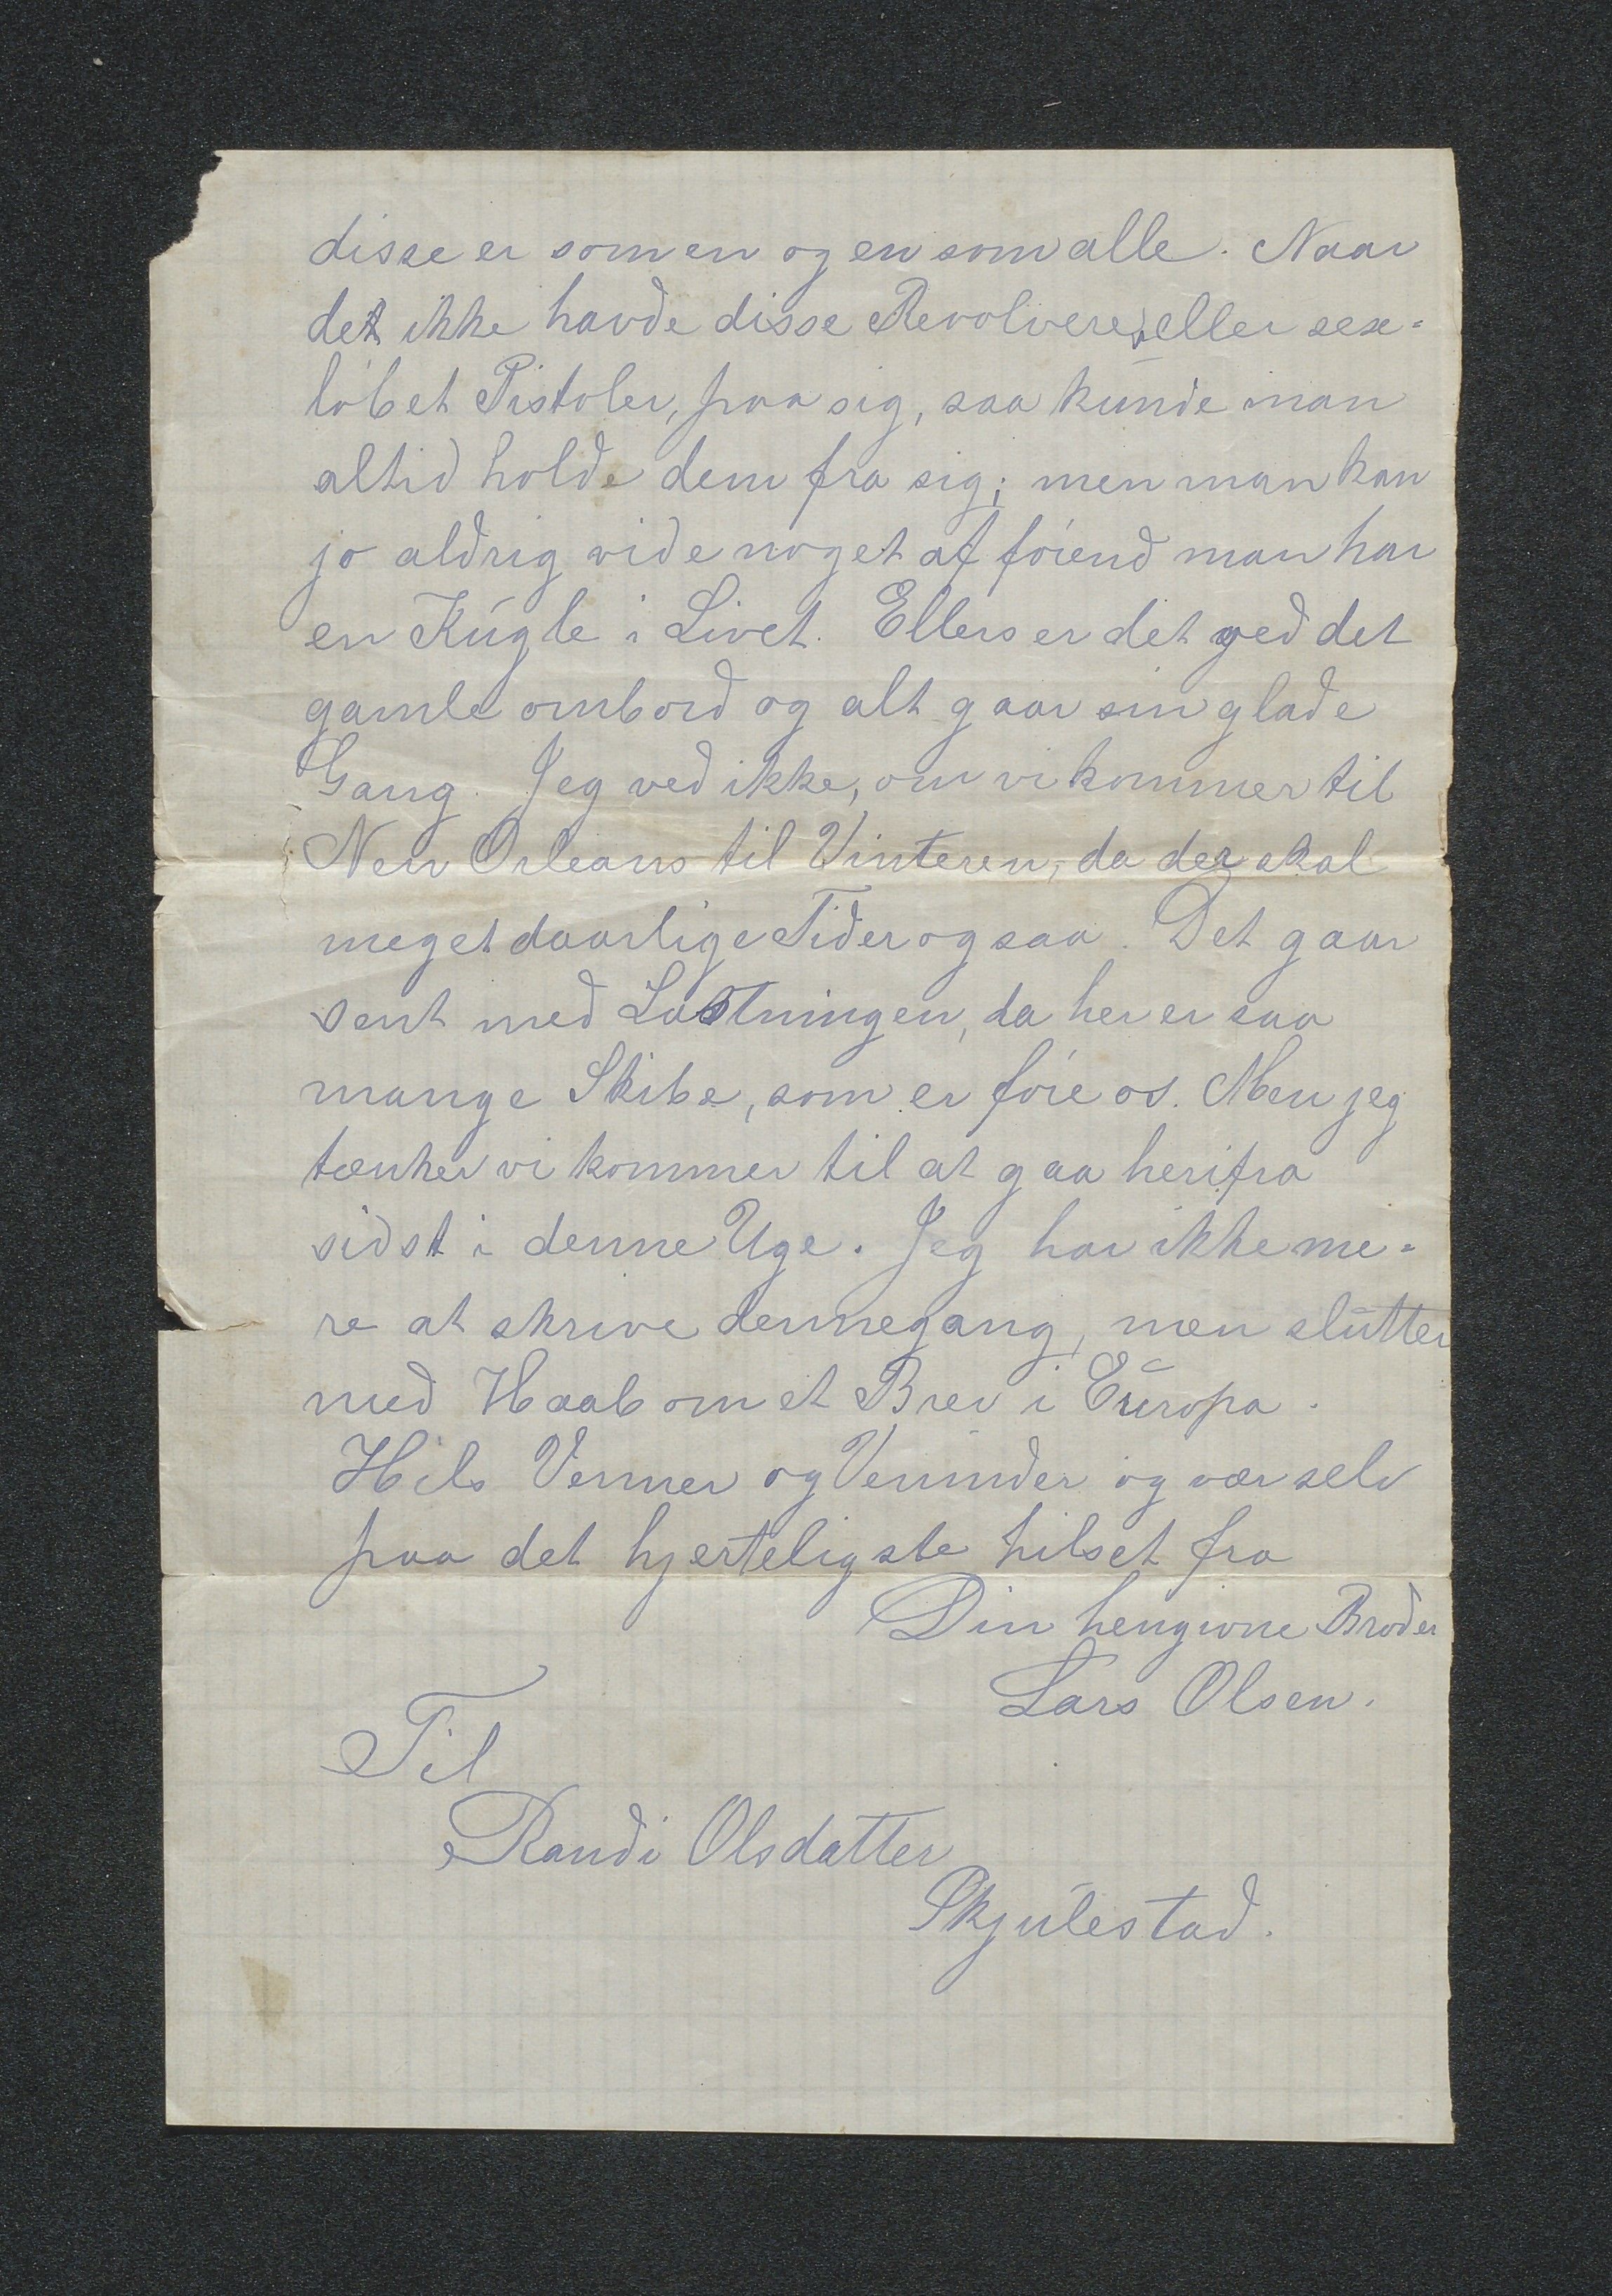 disse er som en og en som alle. Naar
det ikke havde disse Revolvere, eller sex-
løbet Pistoler, paa sig, saa kunde man
altid holde dem fra sig; men man kan
jo aldrig vide noget af førend man har
en Kugle i Livet. Ellers er det ved det
gamle ombord og alt gaar sin glade
Gang. Jeg ved ikke, om vi kommer til
New Orleans til Vinteren, da der skal
meget daarlige Tider ogsaa. Det gaar
sent med Lastningen, da her er saa
mange Skibe, som er føre os. Men jeg
tænker vi kommer til at gaa herifra
sidst i denne Uge. Jeg har ikke me-
re at skrive dennegang, men slutter
med Haab om et Brev i Europa.
Hils Venner og Veninder og vær selv
paa det hjerteligste hilset fra
Din hengivne Broder
Lars Olsen.
Til
Randi Olsdatter
Skjulestad.